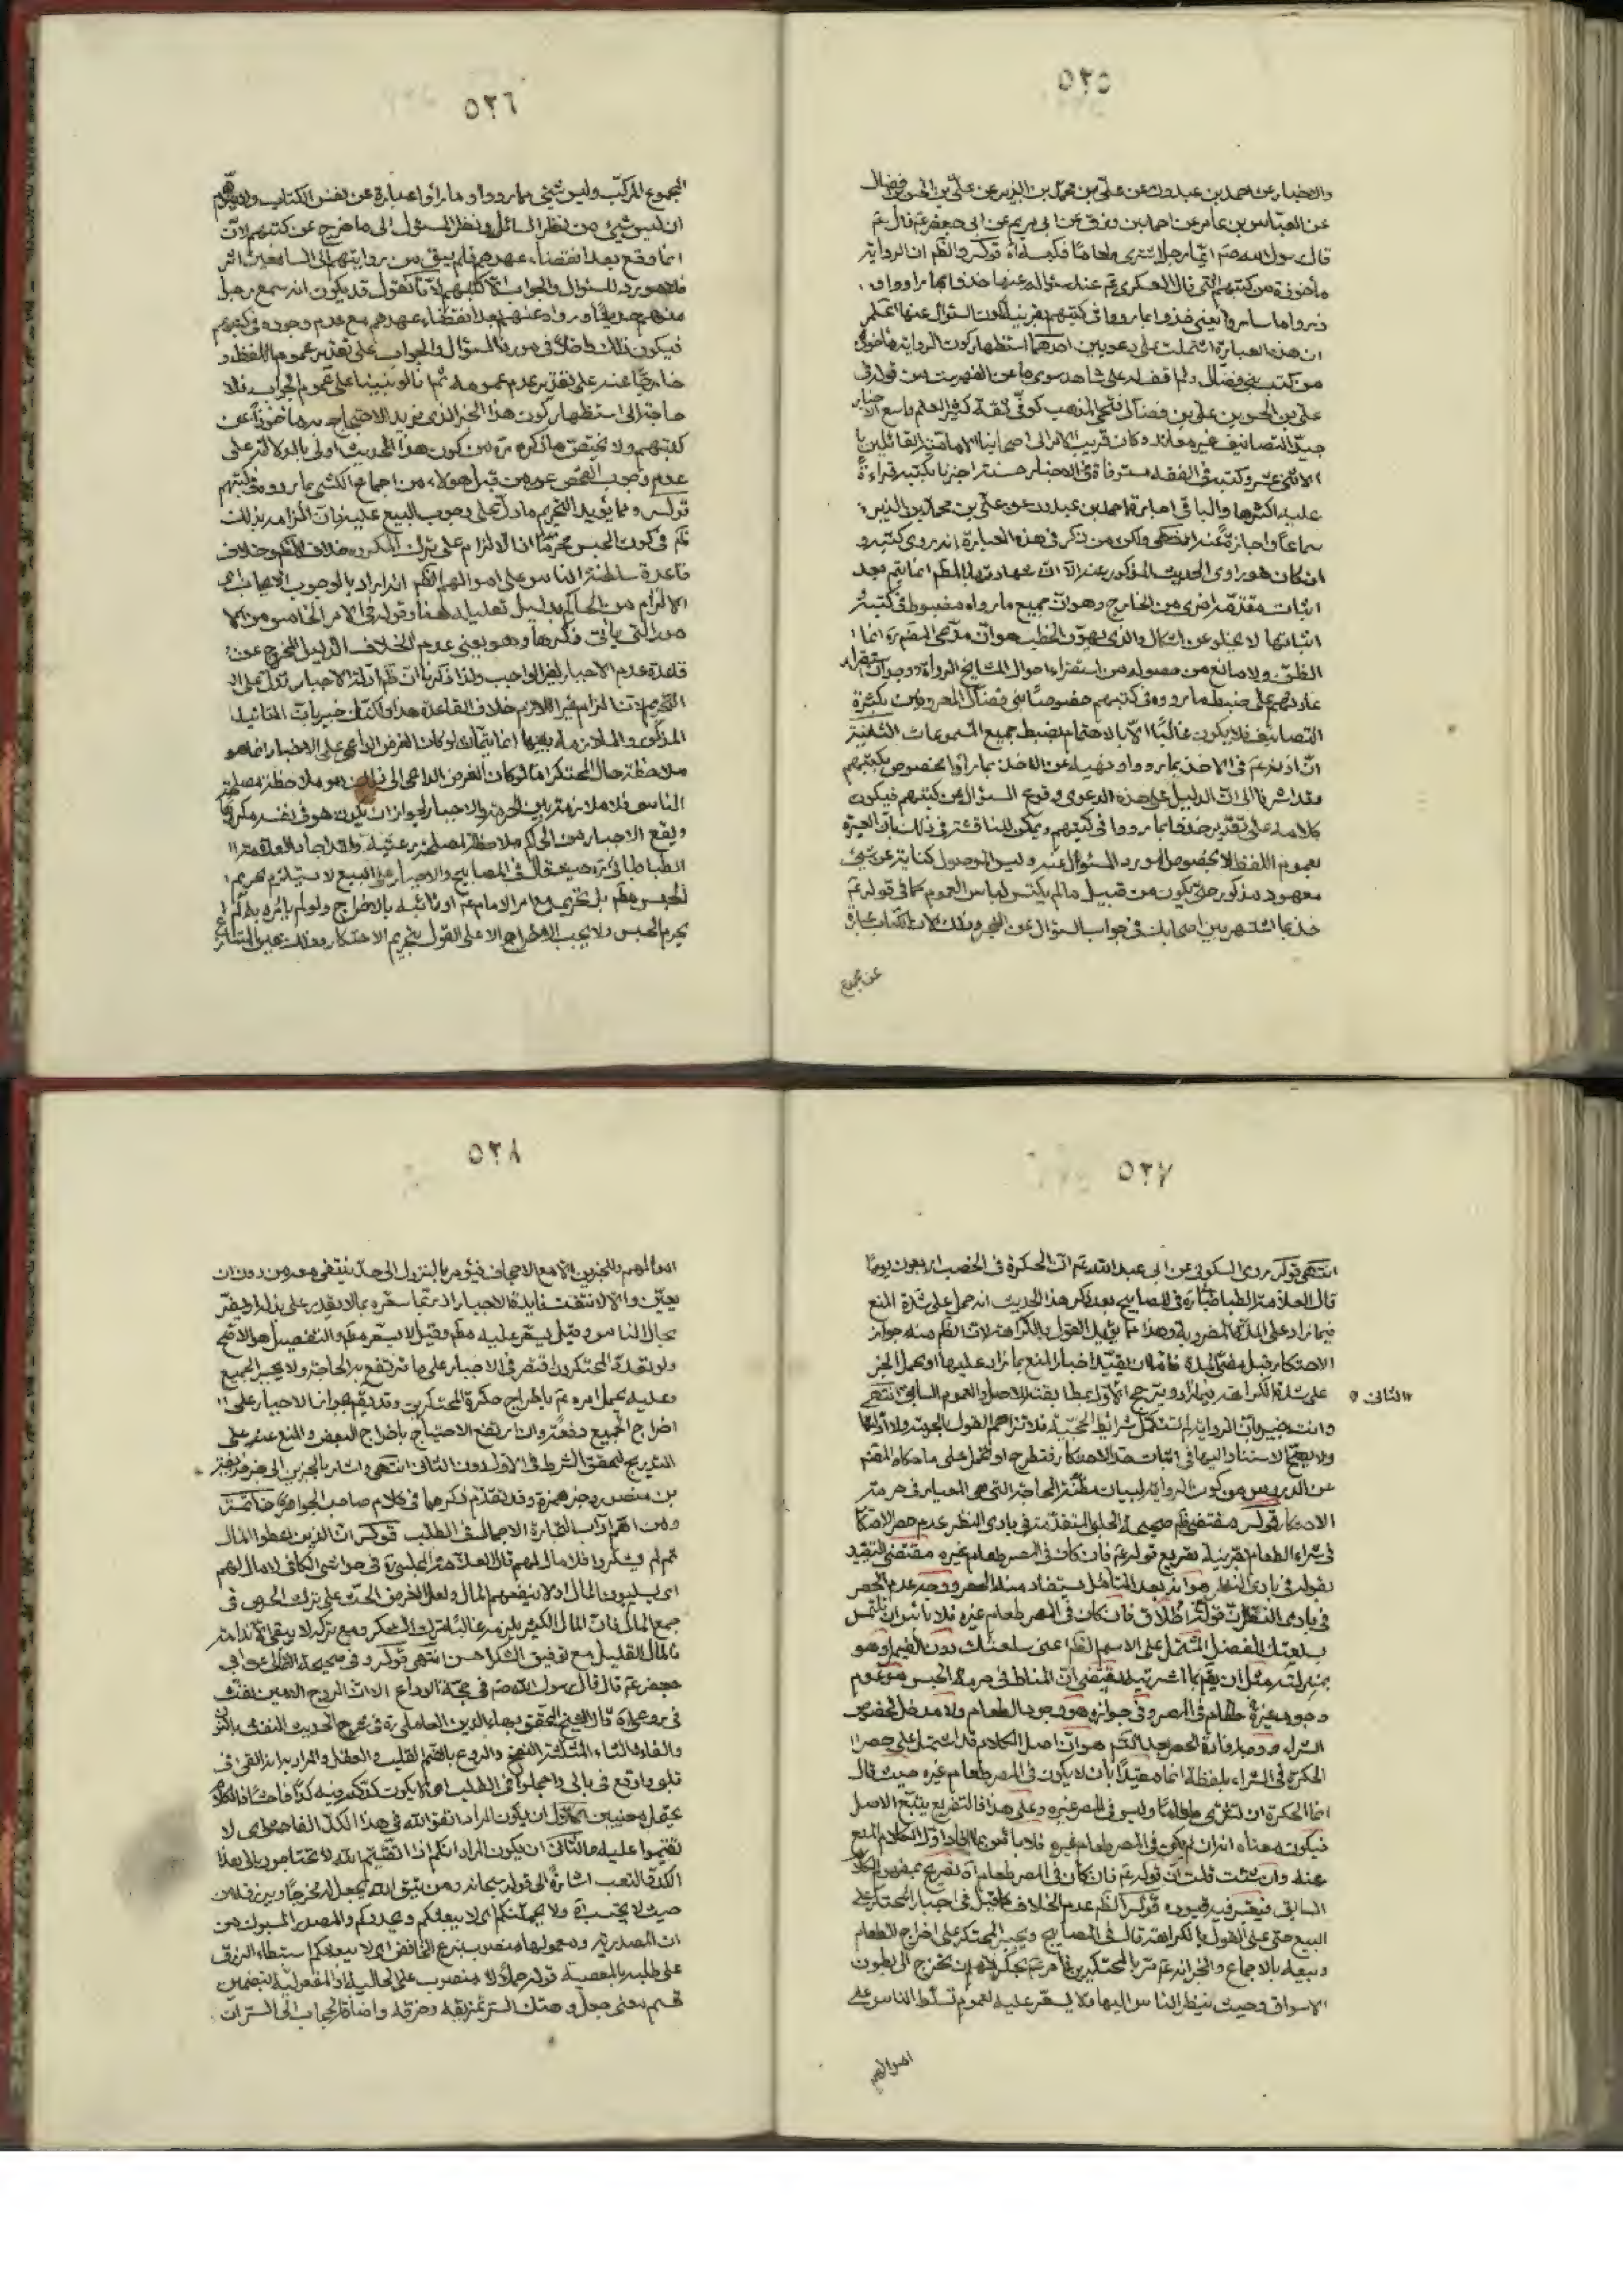 ٥٢٥
والاخبار عن احمد بن عبدون عن علي بن محمد بن الزبير عن علي بن الحسن بن فضال
عن العباس بن عامر عن احمد بن رزق عن ابي مريم عن ابي جعفر عم قال عم
قال رسول الله صم ايما رجل اشترى طعاما فكبسه اه قوله والظم ان الرواية
مأخوذة من كتبهم التي قال العسكري عم عند سؤاله عنها خذوا بما رووا و
ذروا ما رأوا يعني خذوا بما رووا في كتبهم بقرينة كون السؤال عنها اعلم
ان هذه العبارة اشتملت على دعويين احدهما استظهار كون الرواية مأخوذة
من كتب بني فضال ولم اقف له على شاهد سوى ما عن الفهرست من قوله في
علي بن الحسن بن علي بن فضال فطحي المذهب كوفي ثقة كثير العلم واسع الاخبار
جيد التصانيف غير معاند وكان قريب الامر الى اصحابنا الامامية القائلين با
الاثني عشر وكتبه في الفقه مستوفاة في الاخبار حسنة اخبرنا بكتبه قراءة
عليه اكثرها والباقي اجازة احمد بن عبدون عن علي بن محمد بن الزبير
سماعا واجازة عنه انتهى ولكن من ذكر في هذه العبارة انه روى كتبه و
ان كان هو راوي الحديث المذكور عنه الا ان شهادتها بالمطلم انما يتم بعد
اثبات مقدمة اخرى من الخارج وهو ان جميع ما رواه مضبوط في كتبه و
اثباتها لا يخلو عن اشكال والذي يهون الخطب هو ان مدعى المصم ره انما
الظن ولا مانع من حصوله من استقراء احوال المشايخ الرواة ووجدان استقرار
عادتهم على ضبط ما رووه في كتبهم خصوصا بني فضال المعروفين بكثرة
التصانيف فلا يكون غالبا الا بالاهتمام بضبط جميع المسموعات الثانية
ان اذنه عم في الاخذ بما رووا ونهيه عن الاخذ بما رأوا مخصوص بكتبهم
وقد اشرنا الى ان الدليل على هذه الدعوى وقوع السؤال عن كتبهم فيكون
كلامه على تقدير خذوا بما رووا في كتبهم ويمكن المناقشة في ذلك بان العبرة
بعموم اللفظ لا بخصوص المورد المسئول عنه وليس الموصول كناية عن شيء
معهود مذكور حتى يكون من قبيل ما لم يكتس لباس العموم كما في قوله عم
خذ بما اشتهر بين اصحابك في جواب السؤال عن الخبر وذلك لان الكتاب عبارة
عن مجموع
٥٢٦
المجموع المركب وليس شيء مما رووا وما رأوا عبارة عن نفس الكتاب ولا يتوهم
ان ليس شيء من نظر السائل ونظر المسئول الى ما خرج عن كتبهم لان
انما وقع بعد انقضاء عهدهم فلم يبق من روايتهم الى السامعين اثر
فلا مورد للسؤال والجواب الا كتبهم لانا نقول قد يكون انه سمع رجل
منهم حديثا ورواه عنهم بعد انقضاء عهدهم مع عدم وجوده في كتبهم
فيكون ذلك داخلا في مورد السؤال والجواب على تقدير عموم اللفظ و
خارجا عنه على تقدير عدم عمومه ثم انا لو بنينا على عموم الجواب فلا
حاجة الى استظهار كون هذا الخبر الذي نريد الاحتجاج به مأخوذا عن
كتبهم ولا يختص ما ذكره ره من كون هذا الحديث اولى بالدلالة على
عدم وجوب الفحص عمن قبل هؤلاء من اجماع الكشي بما رووه في كتبهم
قوله ومما يؤيد التحريم ما دل على وجوب البيع عليه فان الزامه بذلك
ظم في كون الحبس محرما اذ الالزام على ترك المكروه خلاف الظم وخلاف
قاعدة سلطنة الناس على اموالهم الظم انه اراد بالوجوب الايجاب
الالزام من الحاكم بدليل تعليله هنا وقوله في الامر الخامس من الا
مور التي يأتي ذكرها وهو يعني عدم الخلاف الدليل المخرج عن
قاعدة عدم الاجبار لغير الواجب ولذا ذكرنا ان ظم ادلة الاجبار تدل على
التحريم لان الزام غير اللازم خلاف القاعدة هذا ولكنك خبير بان التأييد
المذكور والملازمة بينها انما يتمان لو كان الغرض الداعي على الاجبار انما هو
ملاحظة حال المحتكر اما لو كان الغرض الداعي الى ذلك هو ملاحظة مصلحة
الناس فلا ملازمة بين الحرمة والاجبار لجواز ان يكون هو في نفسه مكروها
ويقع الاجبار من الحاكم ملاحظة لمصلحة رعيته ولقد اجاد العلامة
الطباطبائي ره حيث قال في المصابيح والاجبار على البيع لا يستلزم تحريم
الحبس مطم بل تحريمه مع امر الامام عم او نائبه بالاخراج ولو لم يأمره به لم
يحرم الحبس ولا يجب الاخراج الا على القول بتحريم الاحتكار
٥٢٧
انتهى قوله روى السكوني عن ابي عبد الله عم ان الحكرة في الخصب اربعون يوما
قال العلامة الطباطبائي ره في المصابيح بعد ذكر هذا الحديث انه حمل على شدة المنع
فيما زاد على المدة المضروبة وهذا مما يؤيد القول بالكراهة لان الظم منه جواز
الاحتكار قبل مضي المدة فاما ان يقيد اخبار المنع بما زاد عليها او يحمل الخبر
على شدة الكراهة فيما زاد ويترجح الاول بمطابقته للاصل والعموم السابق انتهى
الثاني
وانت خبير بان الرواية لم تستكمل شرائط الحجية فلا تزاحم القول بالحرمة ولا ادلتها
ولا يصح الاستناد اليها في اثبات حد الاحتكار فتطرح او تحمل على ما حكاه المصم
عن الدروس من كون الرواية لبيان مظنة الحاجة التي هي المعيار في حرمة
الاحتكار قوله مقتضى ظم صحيحة الحلبي المتقدمة في بادي النظر عدم حصر الاحتكا
في شراء الطعام بقرينة تفريع قوله عم فان كان في المصر طعام غيره مقتضى التقييد
بقوله في بادي النظر هو انه بعد التأمل يستفاد منها الحصر ووجه عدم الحصر
في بادي النظر ان قوله اطلاق فان كان في المصر طعام غيره فلا بأس ان تلتمس
بسلعتك الفضل المشتمل على الاسم الظم اعني سلعتك دون الضمير وهو
بمنزلة مثل ان يقم بما اشتريته يقتضي ان المناط في حرمة الحبس هو عدم
وجود غيره طعام في المصر وفي جوازه هو وجود الطعام ولا مدخل لخصوص
الشراء ووجه افادة الحصر بعد التأمل هو ان اصل الكلام قد اشتمل على حصر
الحكرة في الشراء بلفظة انما مقيدا بان لا يكون في المصر طعام غيره حيث قال
انما الحكرة ان تشتري طعاما وليس في المصر غيره وعلى هذا فالتفريع يتبع الاصل
فيكون معناه انه ان لم يكن في المصر طعام غيره فلا بأس
عنه وان شئت قلت ان قوله عم فان كان في المصر طعام اه تفريع
السابق فيعتبر فيه قيوده قوله الظم عدم الخلاف كما قيل في اجبار المحتكر على
البيع حتى على القول بالكراهة قال في المصابيح ويجبر المحتكر على اخراج الطعام
وبيعه بالاجماع والخبر انه عم مر بالمحتكرين فامر عم بحكرتهم ان تخرج الى بطون
الاسواق وحيث ينظر الناس اليها ولا يسعر عليه لعموم تسلط الناس على
اموالهم
٥٢٨
اموالهم والخبرين الا مع الاجحاف فيؤمر بالنزول الى حد ينتفي معه من دون ان
يعين والا لانتفت فايدة الاجبار اذ ربما سعره بما لا يقدر على بذله او يضر
بحال الناس وقيل يسعر عليه مطم وقيل لا يسعر مطم والتفصيل هو الاصح
ولو تعدد المحتكرون اقتصر في الاجبار على ما ترتفع به الحاجة ولا يجبر الجميع
وعليه يحمل امره عم باخراج حكرة المحتكرين وقد يقم بجواز الاجبار على
اخراج الجميع دفعة وان ارتفع الاحتياج باخراج البعض والمنع عنه على
التدريج لتحقق الشرط في الاول دون الثاني انتهى واشار بالخبرين الى خبر حذيفة
بن منصور وخبر حمزة وقد تقدم ذكرهما في كلام صاحب الجواهر ره خاتمة
ومن اهم اداب التجارة الاجمال في الطلب قوله ان الذين اعطوا المال
ثم لم يشكروا فلا مال لهم قال العلامة المجلسي ره في حواشي الكافي لا مال لهم
اي يسلبون المال او لا ينفعهم المال ولعل الغرض الحث على ترك الحرص في
جمع المال فان المال الكثير يلزمه غالبا ترك الشكر ومع تركه لا يبقى الا ندامته
فالمال القليل مع توفيق الشكر احسن انتهى قوله وفي صحيحة الثمالي عن ابي
جعفر عم قال قال رسول الله صم في حجة الوداع الا ان الروح الامين نفث
في روعي اه قال الشيخ المحقق بهاء الدين العاملي ره في شرح الحديث النفث بالنون
والفاء والثاء المثلثة النفخ والروع بالضم القلب والعقل والمراد به انه القى في
قلبي واوقع في بالي واجملوا في الطلب اي لا يكون كدكم فيه كدا فاحشا
يحتمل معنيين الاول ان يكون المراد اتقوا الله في هذا الكد الفاحش اي لا
تقيموا عليه والثاني ان يكون المراد انكم اذا اتقيتم الله لا تحتاجون الى هذا
الكد والتعب اشارة الى قوله سبحانه ومن يتق الله يجعل له مخرجا ويرزقه من
حيث لا يحتسب اه ولا يحملنكم اي لا يبعثكم ويحدوكم والمصدر المسبوك من
ان المصدرية ومعمولها منصوب بنزع الخافض اي لا يبعثكم استبطاء الرزق
على طلبه بالمعصية قوله حلالا منصوب على الحالية او المفعولية بتضمين
قسم معنى جعل وهتك الستر تمزيقه وخرقه واضافة الحجاب الى الستر ان